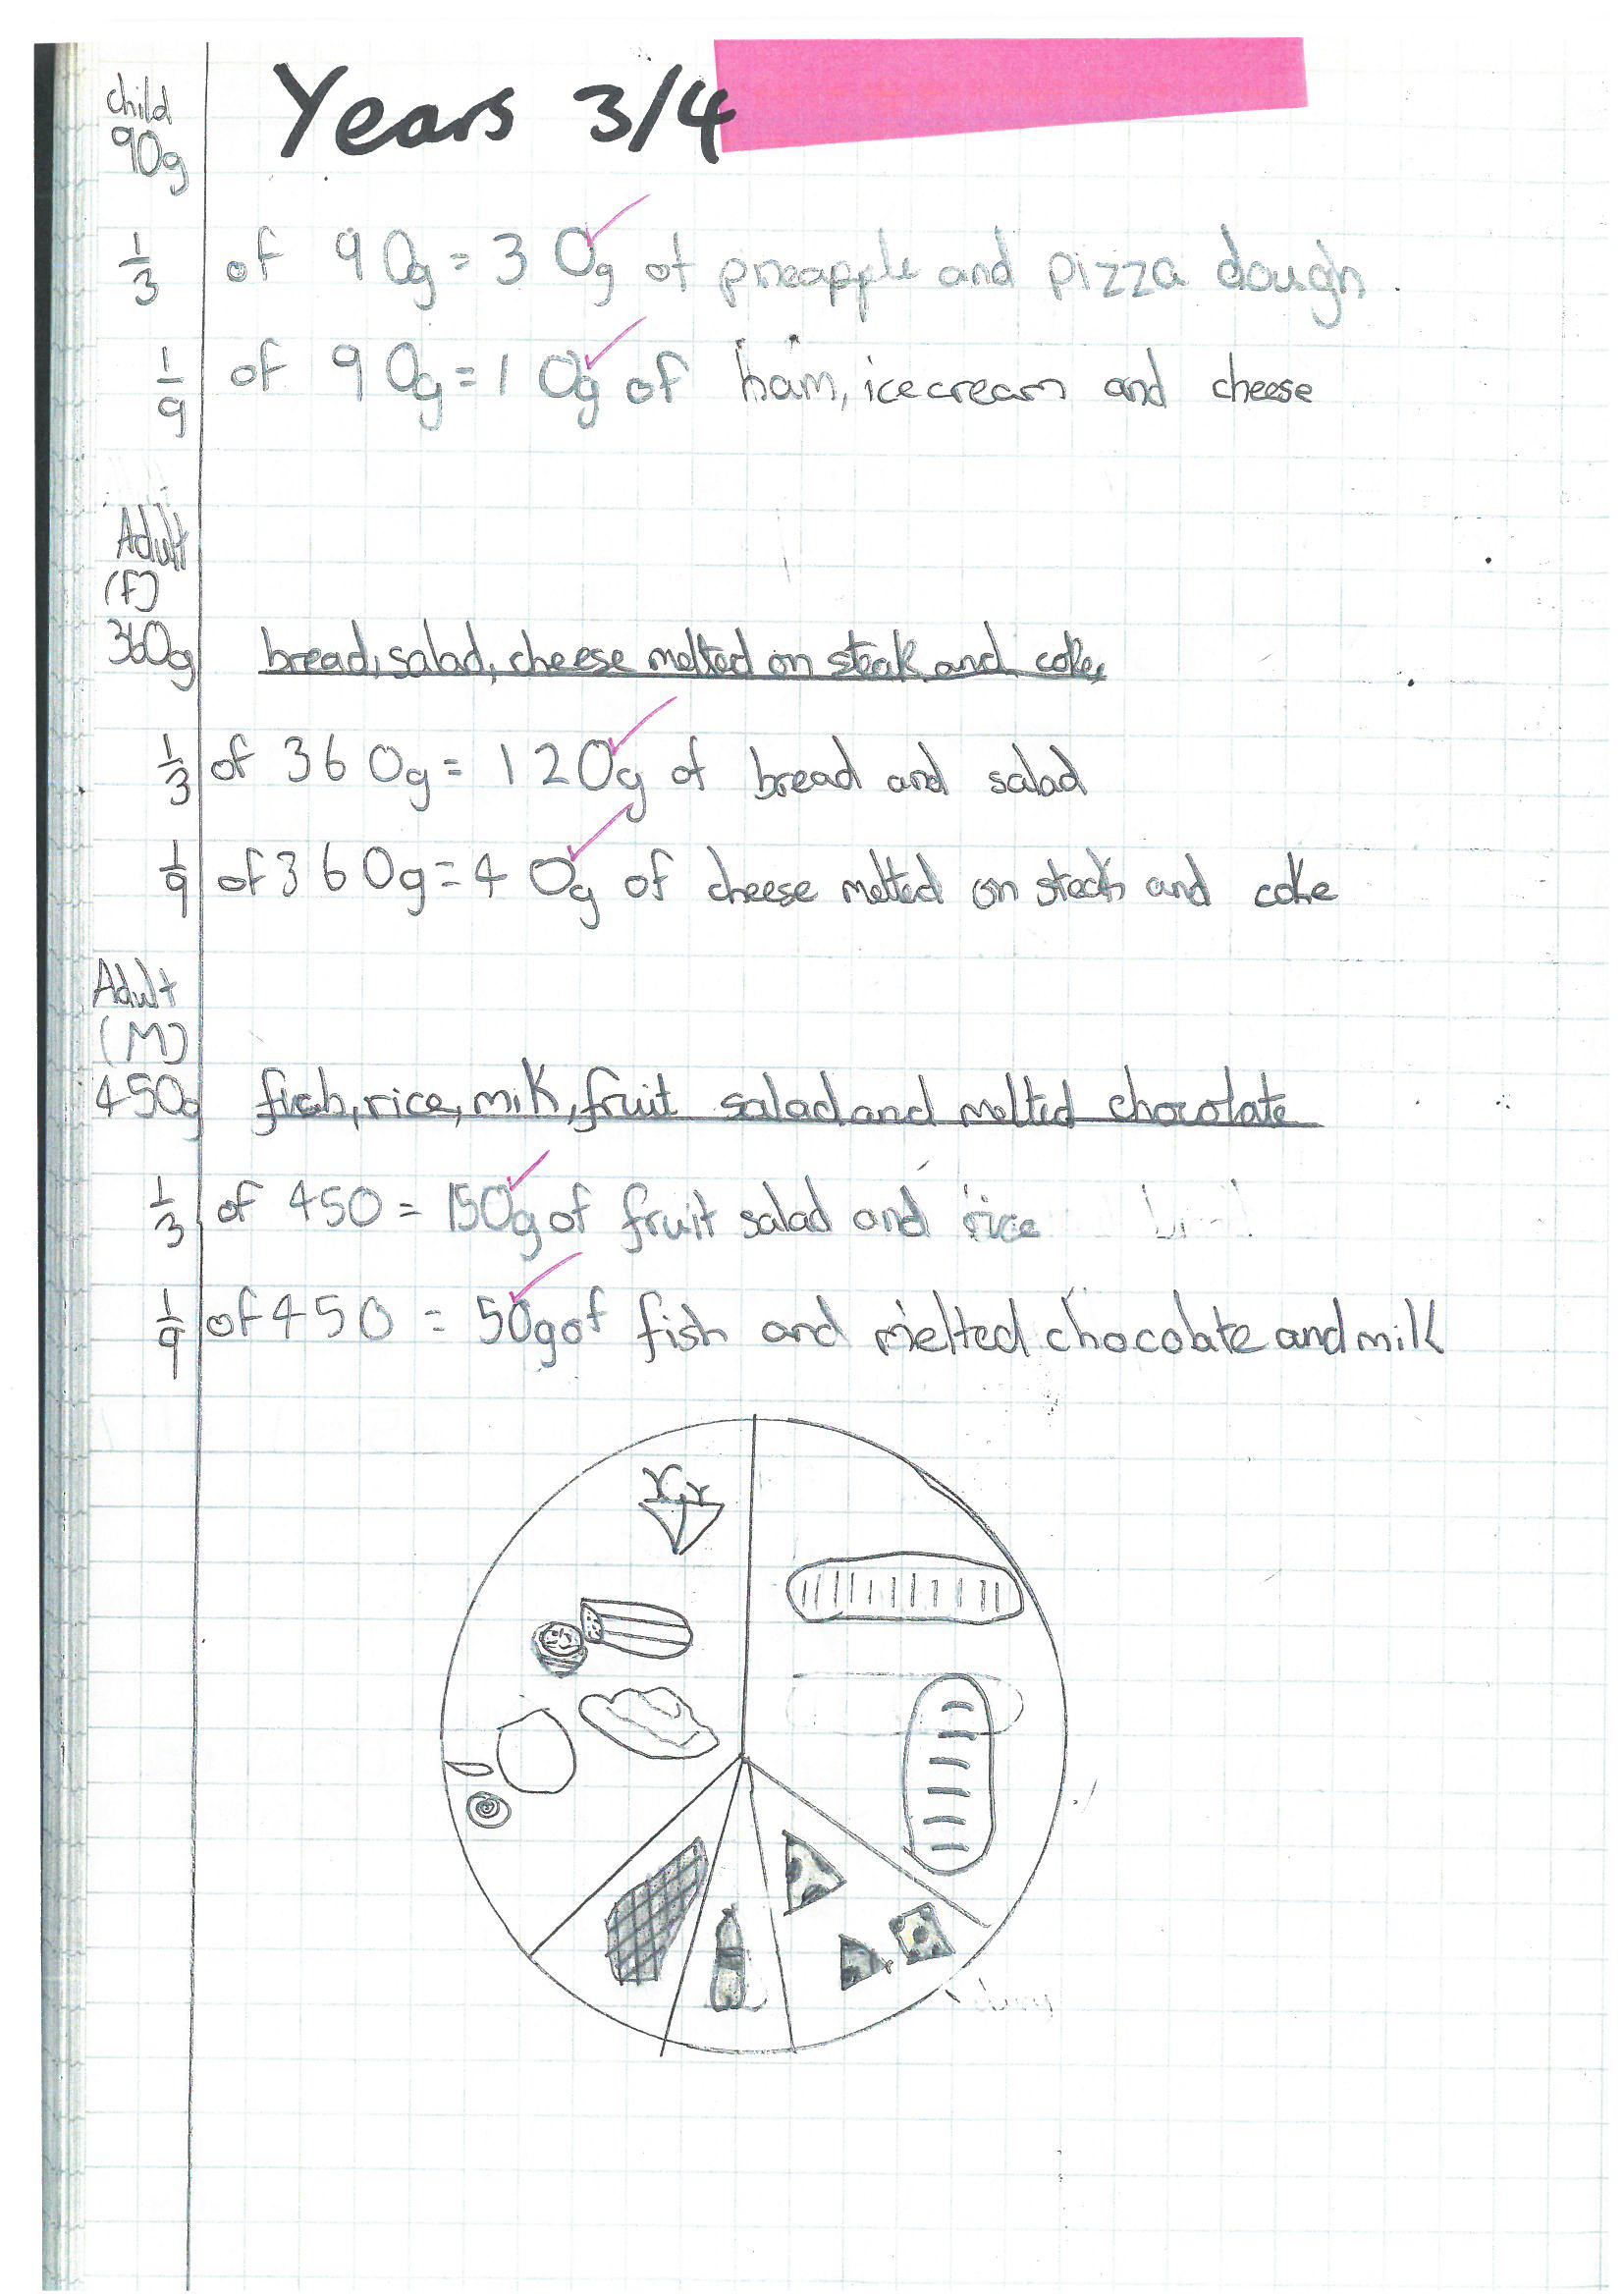 child
90g
Years 3/4
1/3 of 90g = 30g of pineapple and pizza dough
1/9 of 90g = 10g of ham, icecream and cheese
Adult
(F)
360g bread, salad, cheese melted on steak and coke,
1/3 of 360g = 120g of bread and salad
1/9 of 360g = 40g of cheese melted on steak and coke
Adult
(M)
450g fish, rice, milk, fruit salad and melted chocolate
1/3 of 450 = 150g of fruit salad and rice
1/9 of 450 = 50g of fish and melted chocolate and milk